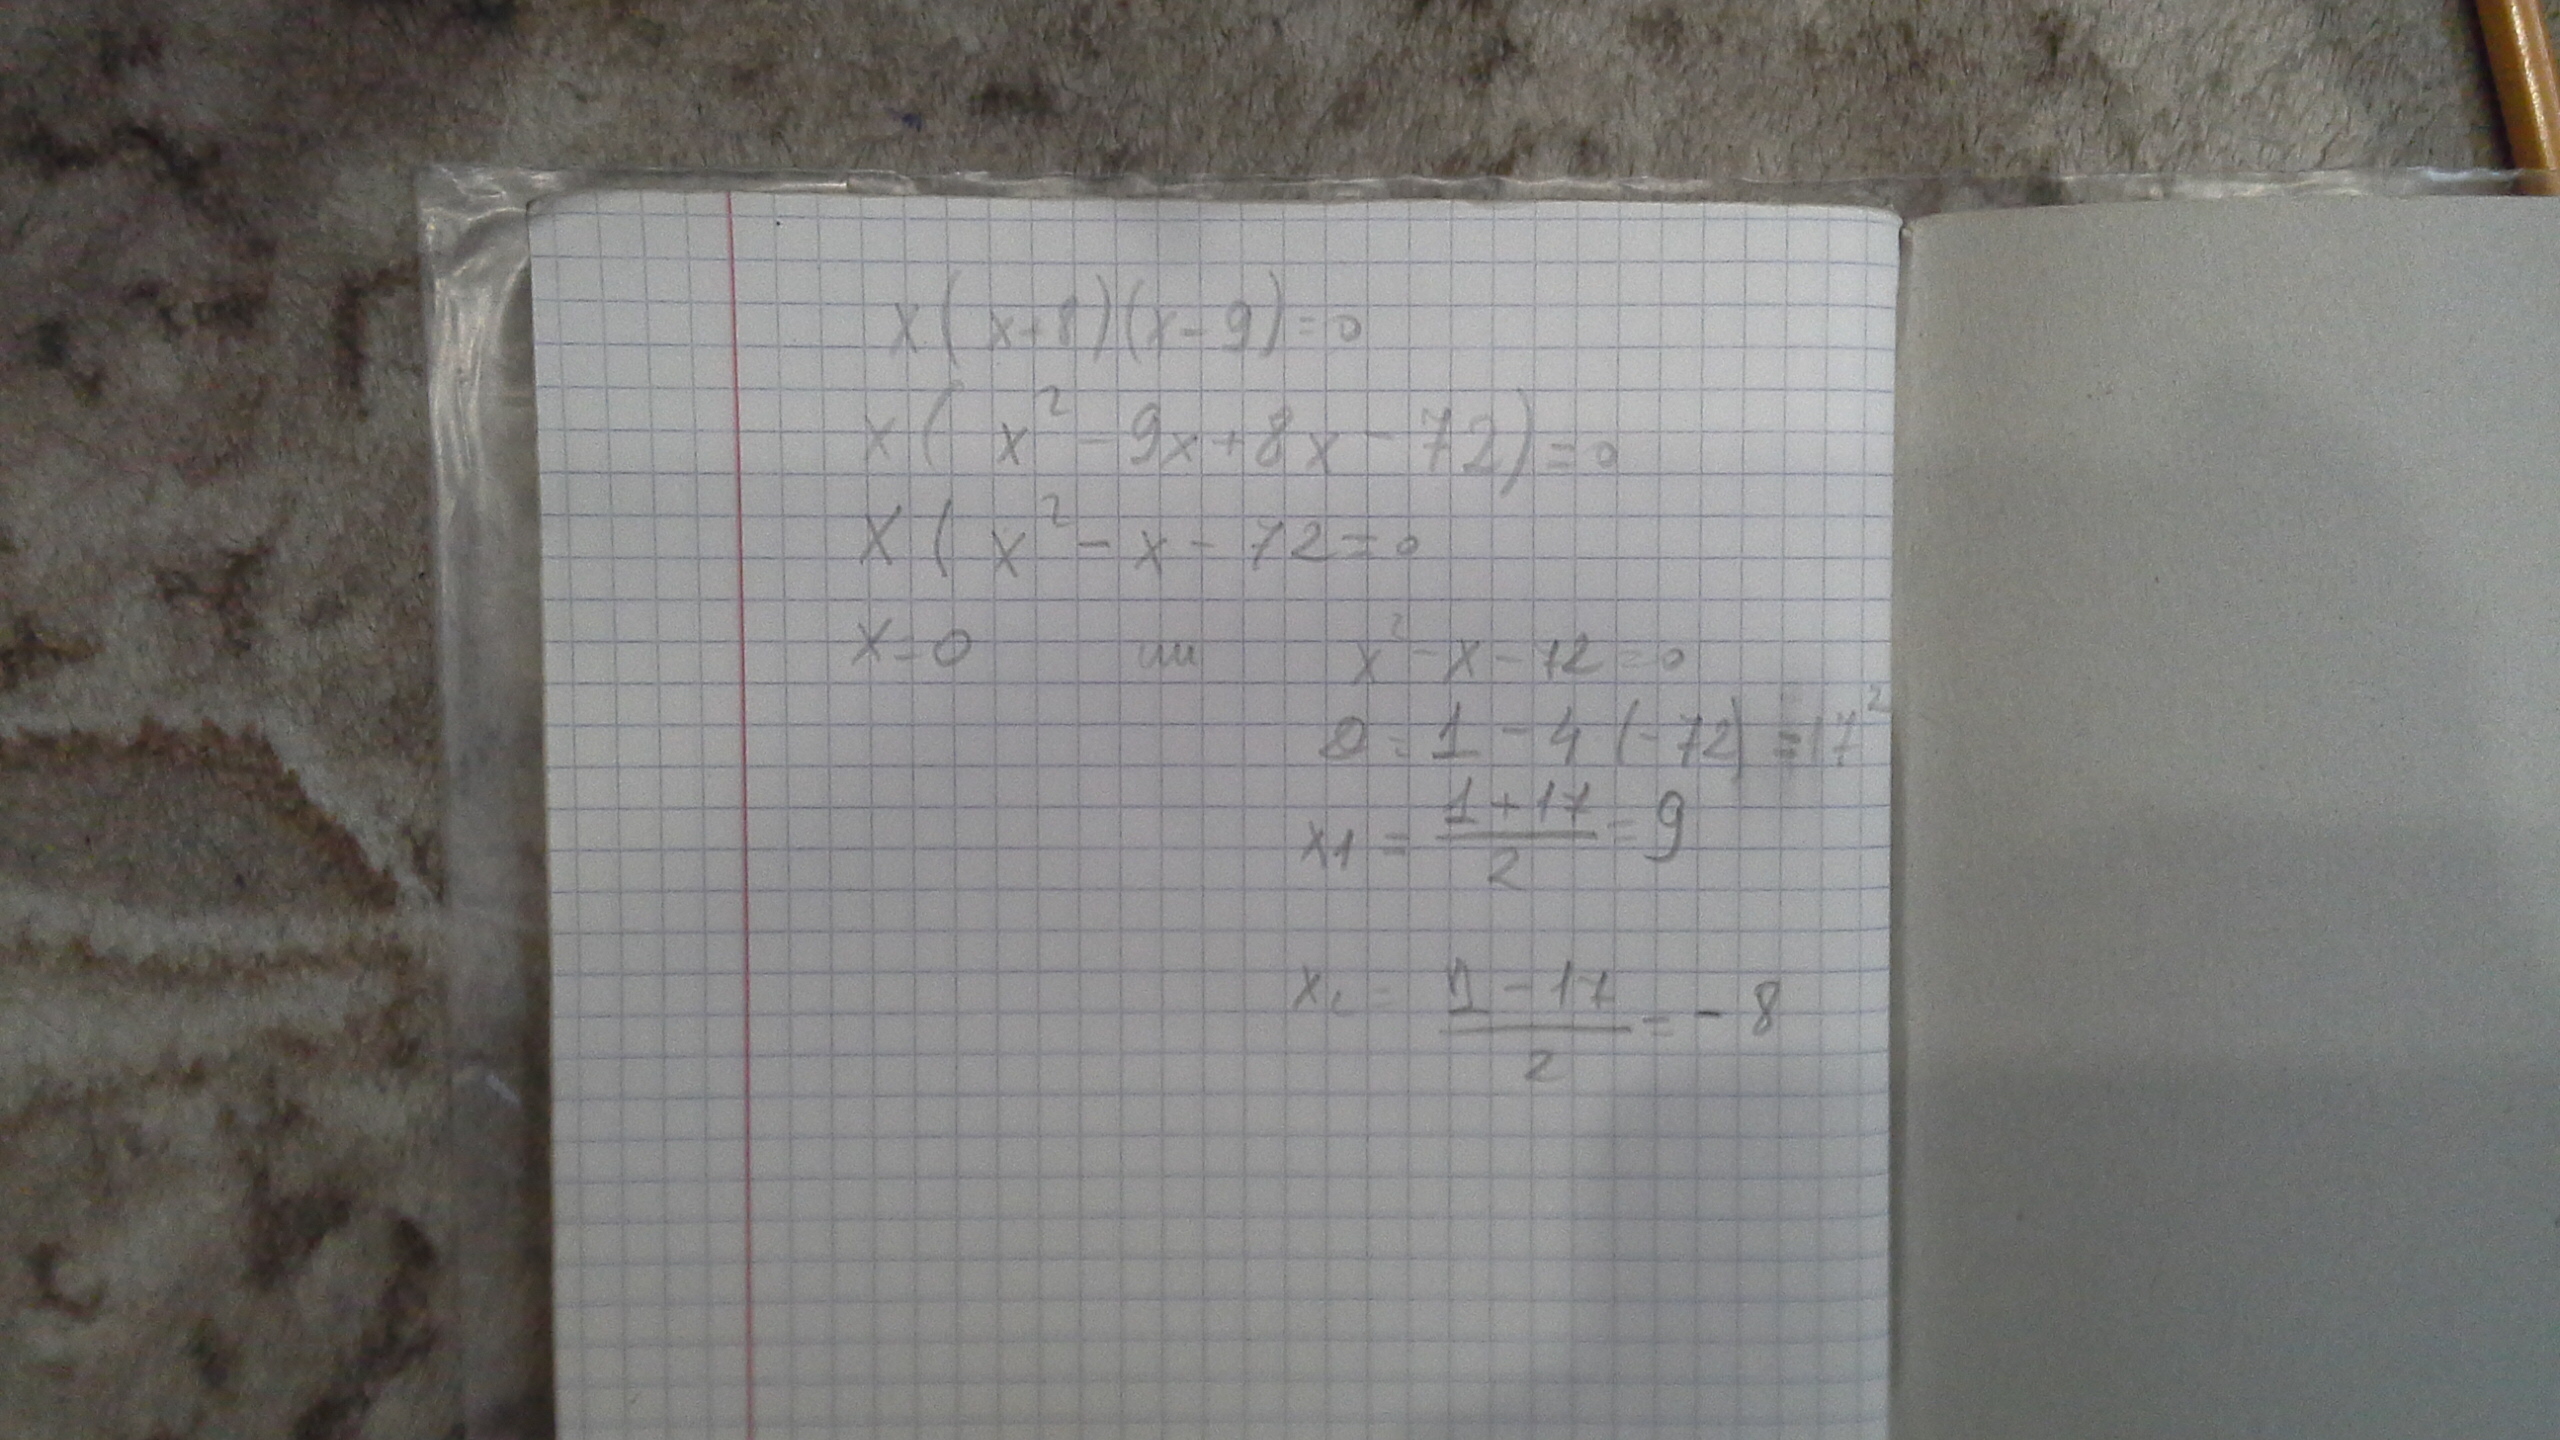 x(x+8)(x-9)=0
x(x²-9x+8x-72)=0
x(x²-x-72=0
x=0 или x²-x-72=0
D=1-4(-72)=17²
x1=(1+17)/2=9
x2=(1-17)/2=-8